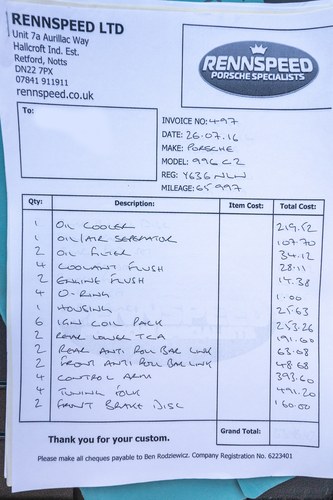 RENNSPEED LTD
Unit 7a Aurillac Way
Hallcroft Ind. Est.
Retford, Notts
DN22 7PX
07841 911911
rennspeed.co.uk
RENNSPEED
PORSCHE SPECIALISTS
To:
INVOICE NO: 497
DATE: 26.07.16
MAKE: PORSCHE
MODEL: 996 C2
REG: Y636 NLN
MILEAGE: 65997
Qty: Description: Item Cost: Total Cost:
1 OIL COOLER 219.52
1 OIL/AIR SEPARATOR 107.70
2 OIL FILTER 34.12
4 COOLANT FLUSH 28.11
2 ENGINE FLUSH 14.38
4 O-RING 1.00
1 HOUSING 25.63
6 IGN COIL PACK 253.26
2 REAR LOWER TCA 191.60
2 REAR ANTI ROLL BAR LINK 63.08
2 FRONT ANTI ROLL BAR LINK 48.68
4 CONTROL ARM 393.60
4 TUNING FORK 491.20
2 FRONT BRAKE DISC 160.00
Grand Total:
Thank you for your custom.
Please make all cheques payable to Ben Rodziewicz. Company Registration No. 6223401